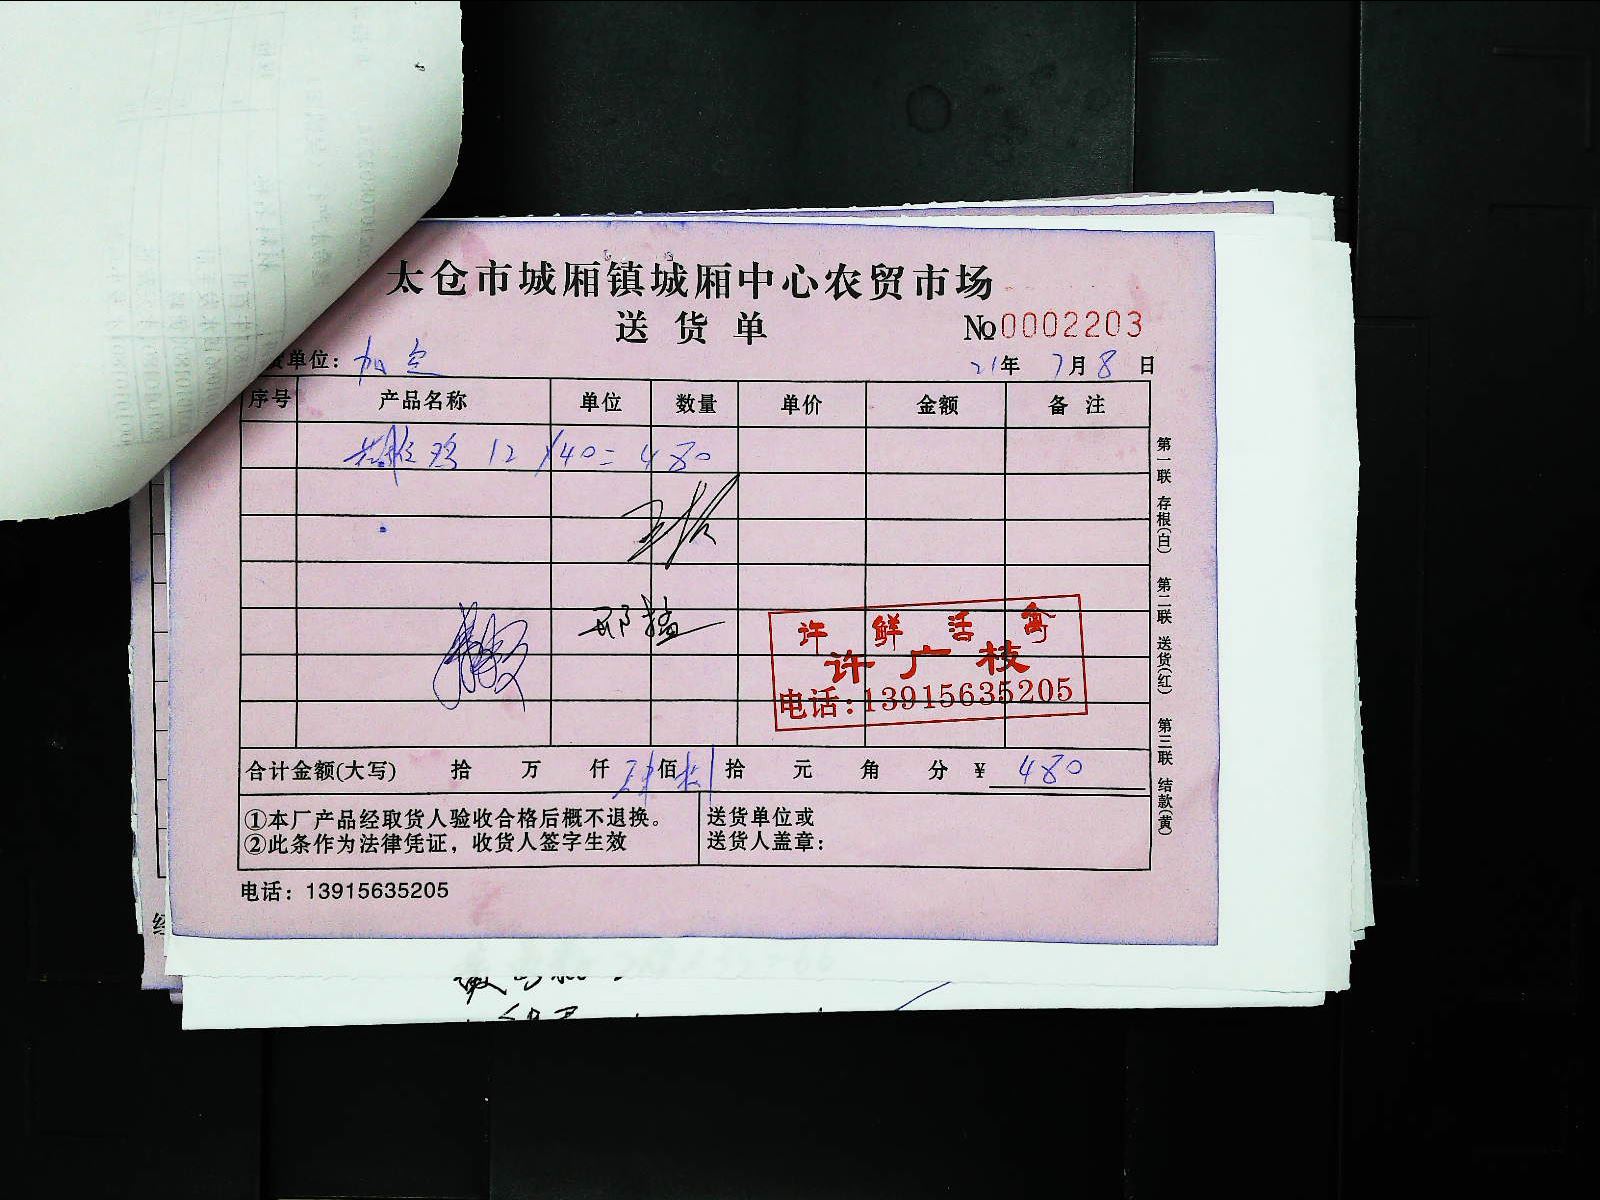 太仓市城厢镇城厢中心农贸市场
送货单
№0002203
单位：加定
21年 7月 8日
序号 产品名称 单位 数量 单价 金额 备注
鸡 12 / 40 = 480
许 鲜 活 禽
许广枝
电话：13915635205
合计金额(大写) 拾 万 仟 肆佰捌拾 元 角 分 ¥ 480
①本厂产品经取货人验收合格后概不退换。
②此条作为法律凭证，收货人签字生效
送货单位或
送货人盖章：
电话：13915635205
第一联 存根(白) 第二联 送货(红) 第三联 结款(黄)